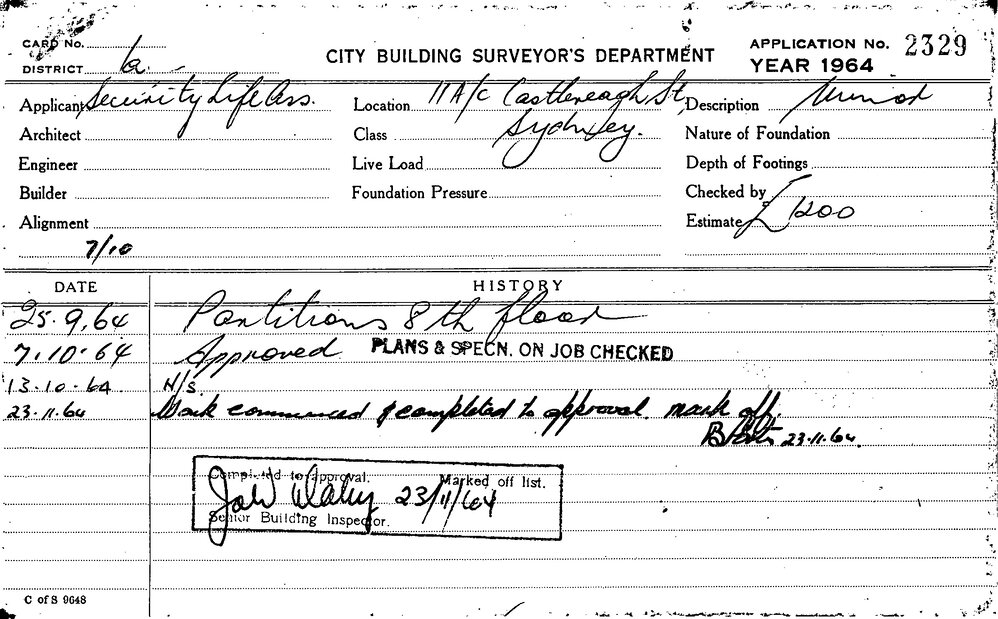 CARD No.
CITY BUILDING SURVEYOR'S DEPARTMENT
APPLICATION No. 2329
DISTRICT 1a.
YEAR 1964
Applicant Security Life Ass. Location 11 A/C Castlereagh St, Description Minor
Architect Class Sydney. Nature of Foundation
Engineer Live Load Depth of Footings
Builder Foundation Pressure Checked by
Alignment Estimate £ 1200
7/10
DATE HISTORY
25.9.64 Partitions 8th floor
7.10.64 Approved PLANS & SPECN. ON JOB CHECKED
13.10.64 N/S
23.11.64 Work commenced & completed to approval. mark off.
23.11.64.
Completed to approval. Marked off list.
23/11/64
Senior Building Inspector.
C of S 9648